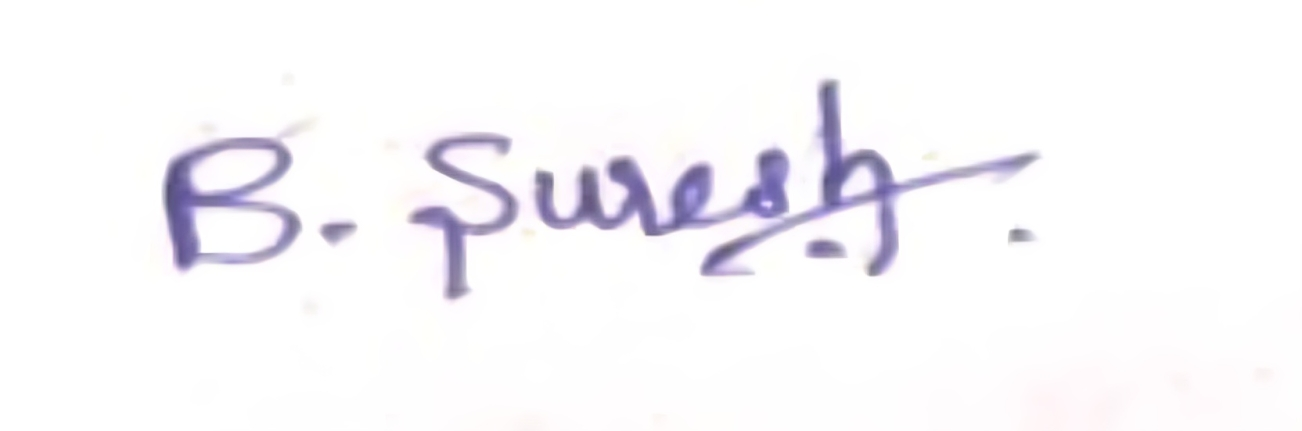 B. Suresh